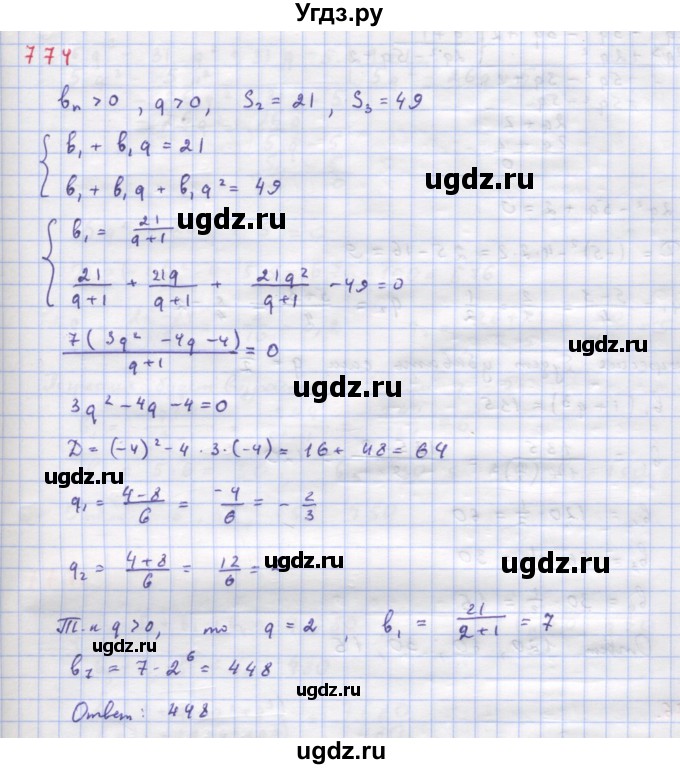 Угдз.ру
774
bn > 0 , q > 0, S₂ = 21 , S₃ = 49
b₁ + b₁q = 21
b₁ + b₁q + b₁q² = 49
b₁ = 21/(q+1)
ugdz.ru ugdz.ru
21/(q+1) + 21q/(q+1) + 21q²/(q+1) - 49 = 0
7(3q² - 4q - 4)/(q+1) = 0
ugdz.ru
ugdz.ru
3q² - 4q - 4 = 0
D = (-4)² - 4 · 3 · (-4) = 16 + 48 = 64
ugdz.ru
q₁ = (4-8)/6 = -4/6 = - 2/3
ugdz.ru
q₂ = (4+8)/6 = 12/6 =
ugdz.ru
Т.к q > 0, то q = 2 , b₁ = 21/(2+1) = 7
ugdz.ru
b₇ = 7 · 2⁶ = 448
ugdz.ru
Ответ: 448
ugdz.ru